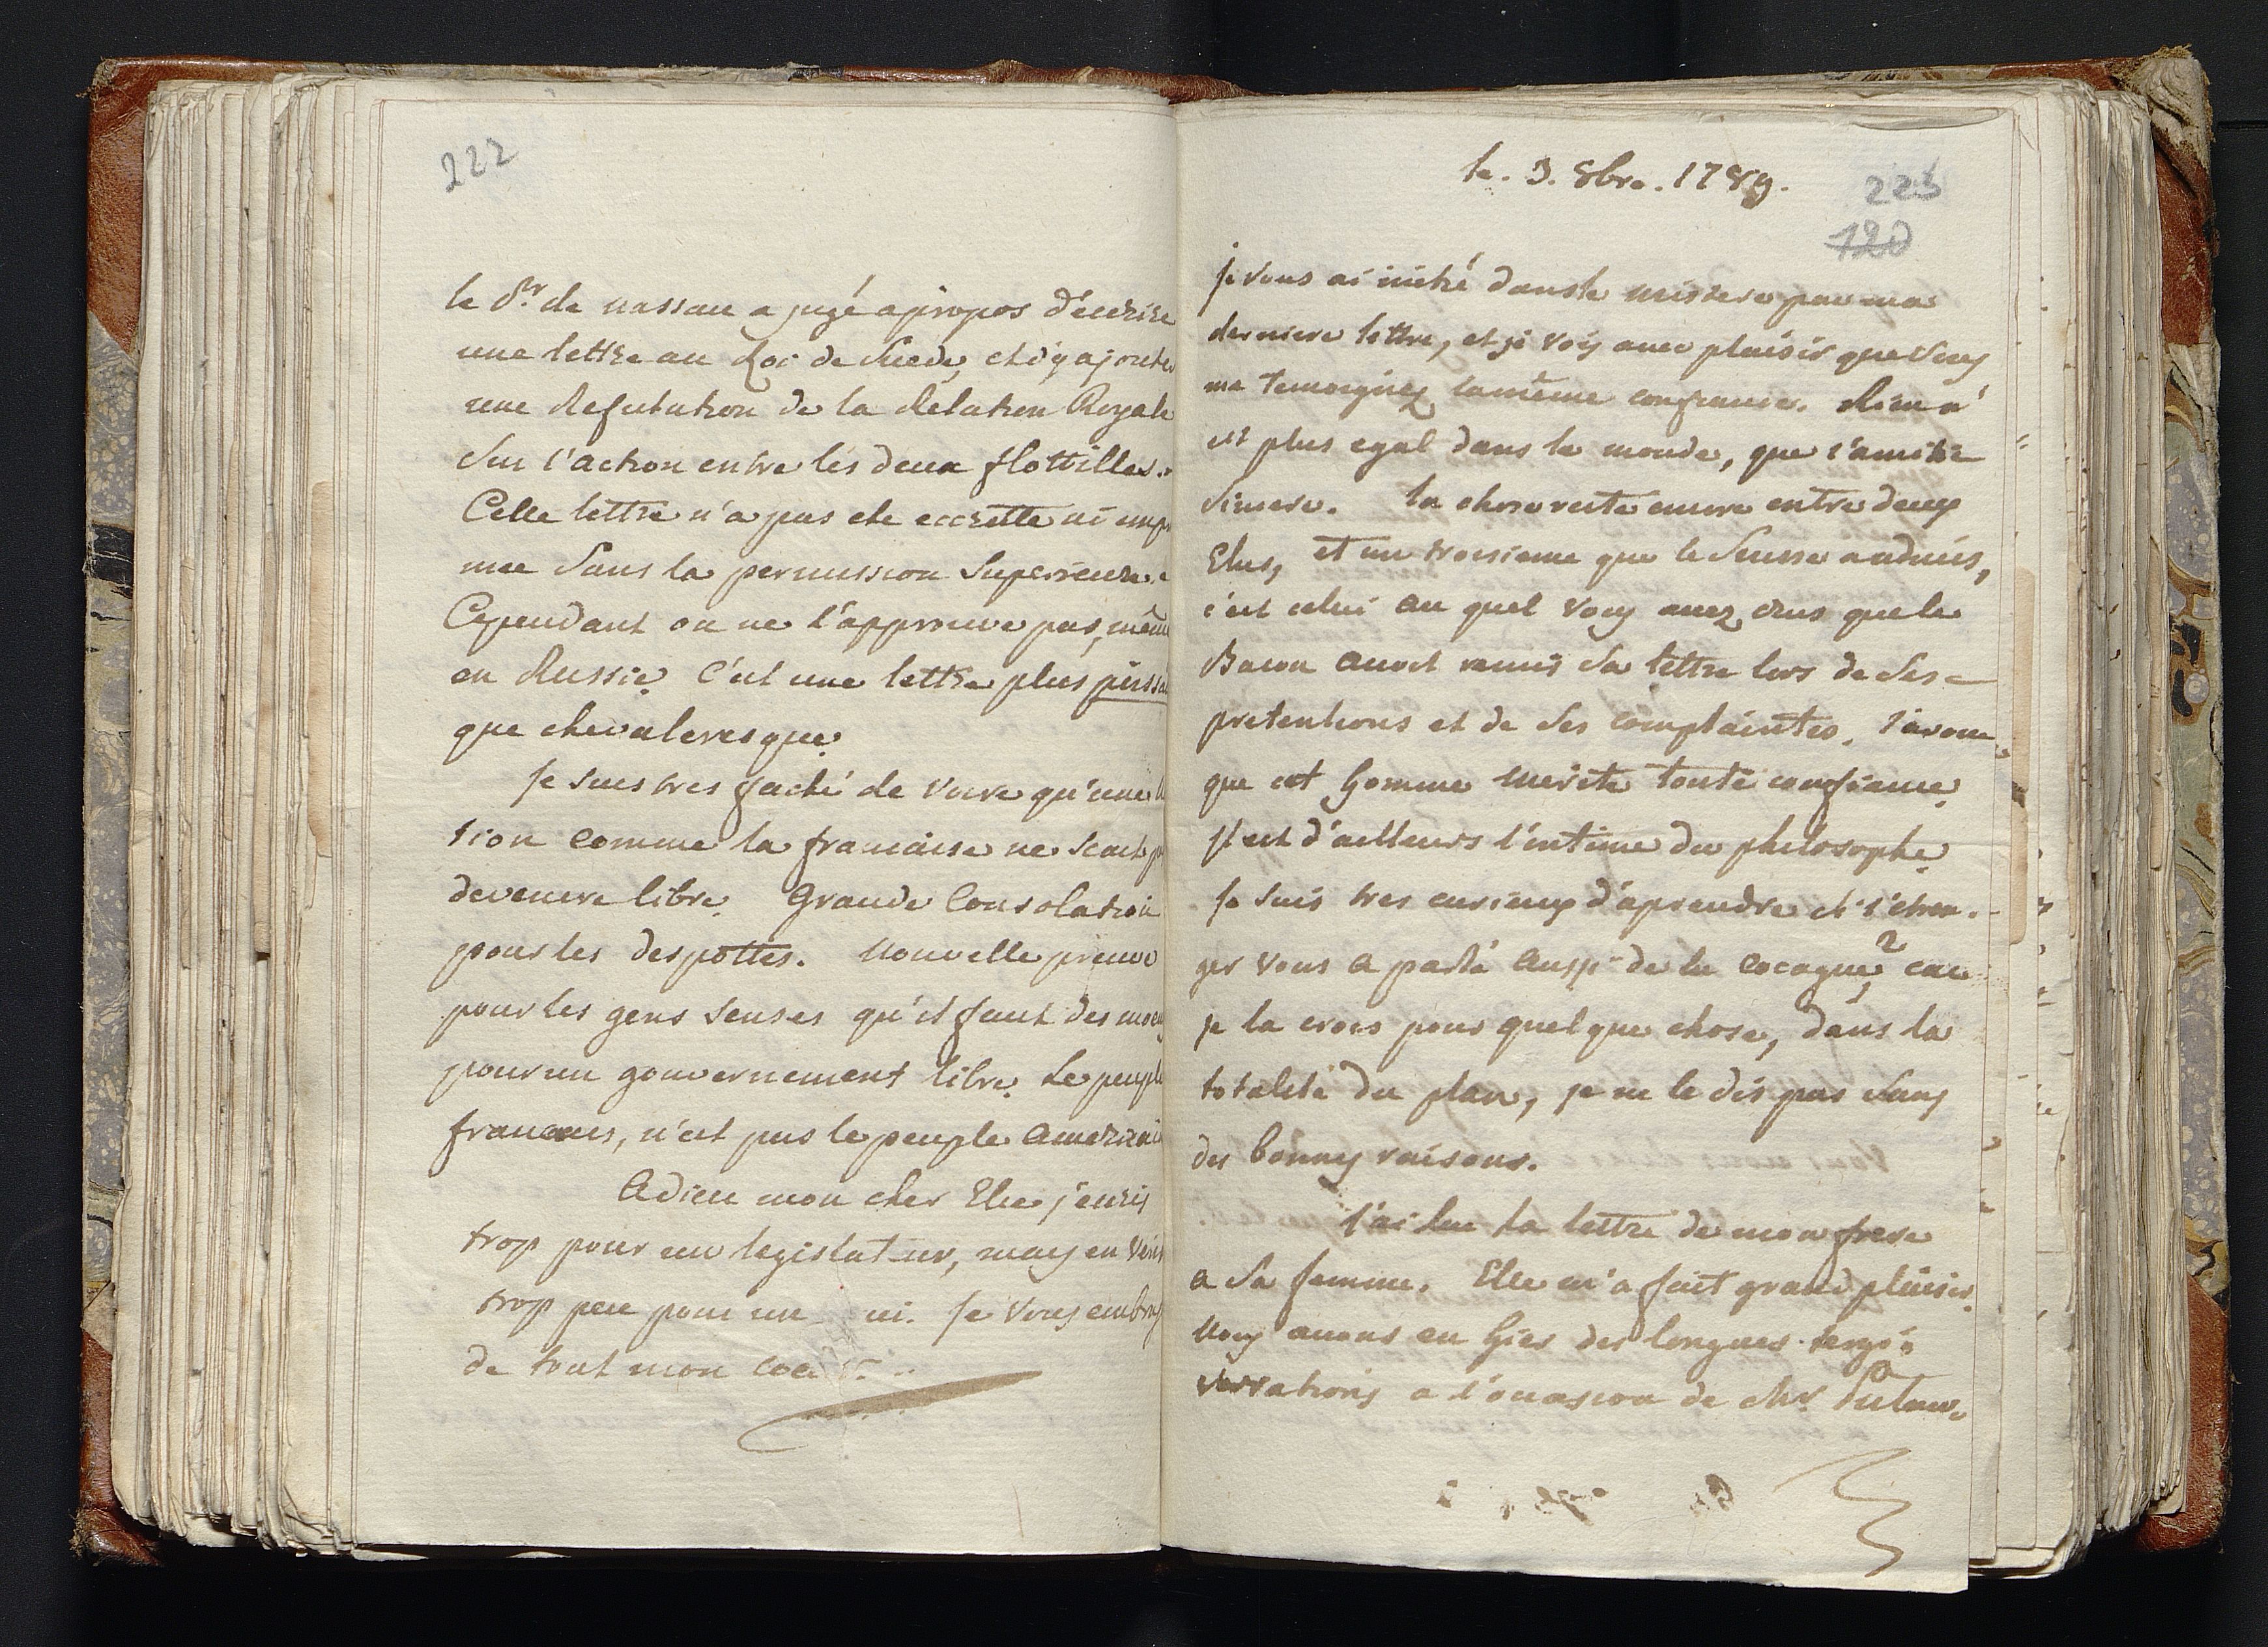 222
le Pr de nassau a jugé apropos d'écrire
une lettre au Roi de Suede, et d'y ajouter
une Refutation de la Relation Royale
Sur l'action entre les deux flottilles.
Cette lettre n'a pas ete eccritte ni impr
mee Sans la permission Superieure.
Cependant on ne l'approuve pas, même
en Russie. C'est une lettre plus
que chevaleresque.
Je suis tres faché de voire qu'une
tion comme la francaise ne scait
devenire libre. Grande Consolation
pour les despottes. Nouvelle preuve
pour les gens senses qu'il faut des moeu
pour un gouvernement libre. Le peuple
francais, n'est pas le peuple Americai
Adieu mon cher Elie j'ecris
trop pour un legislateur, mais en
trop peu pour un mi. Je vous embras
de tout mon coeur.
le. 3. 8bre. 1789.
223
120
je vous ai initié dans le mistere par ma
derniere lettre, et je vois avec plaisir que vous
me temoignez la même confiance. Rien n'
est plus egal dans le monde, que l'amitié
sincere. la chose reste encore entre deux
Elus, et un troisieme que le Suisse a admis,
c'est celui au quel vous avez crus que le
Baron avoit remis sa lettre lors de ses
pretentions et de ses complaintes. J'avoue
que cet homme merite toute confiance.
Il est d'ailleurs l'intime du philosophe.
Je suis tres curieux d'aprendre si l'etran-
ger vous a parlé aussi de la Cocagne? car
je la crois pour quelque chose, dans la
totalité du plan, je ne le dis pas sans
des bonnes raisons.
J'ai lue la lettre de mon frere
a sa femme. Elle m'a fait grand plaisir.
Nous avons eu hier des longues tergi-
versations a l'occasion de Mr.